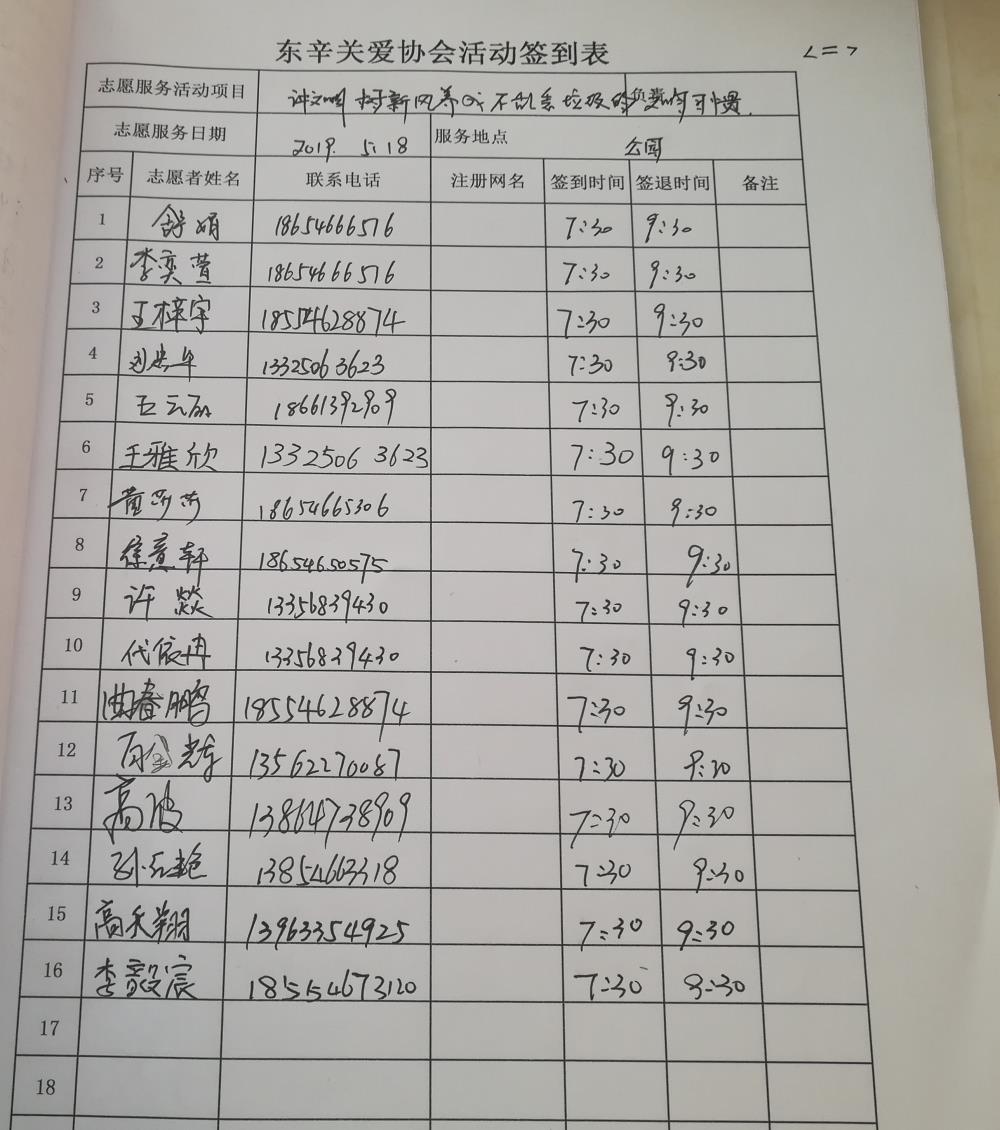 东辛关爱协会活动签到表
<二>
志愿服务活动项目 讲文明树新风养成不乱丢垃圾的 习惯
志愿服务日期 2019. 5.18 服务地点 公园
序号 志愿者姓名 联系电话 注册网名 签到时间 签退时间 备注
1 舒娟 18654666576 7:30 9:30
2 李奕萱 18654666576 7:30 9:30
3 王梓宇 18554628874 7:30 9:30
4 13325063623 7:30 9:30
5 王云丽 18661392909 7:30 9:30
6 王雅欣 13325063623 7:30 9:30
7 黄莎莎 18654665306 7:30 9:30
8 徐意轩 18654650575 7:30 9:30
9 许燚 13356839430 7:30 9:30
10 代依冉 13356839430 7:30 9:30
11 曲春鹏 18554628874 7:30 9:30
12 13562270087 7:30 9:30
13 高波 13864738969 7:30 9:30
14 孙红艳 13854663318 7:30 9:30
15 高禾翔 13963354925 7:30 9:30
16 李毅宸 18554673120 7:30 9:30
17
18